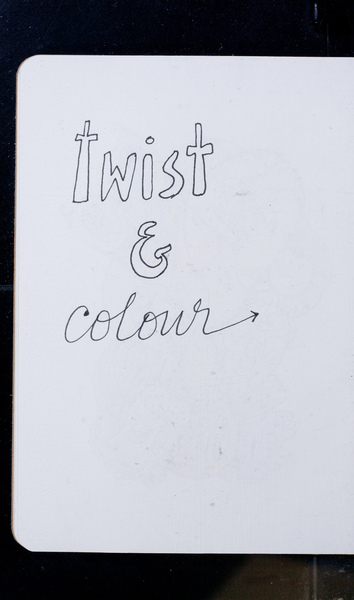 twist
&
colour